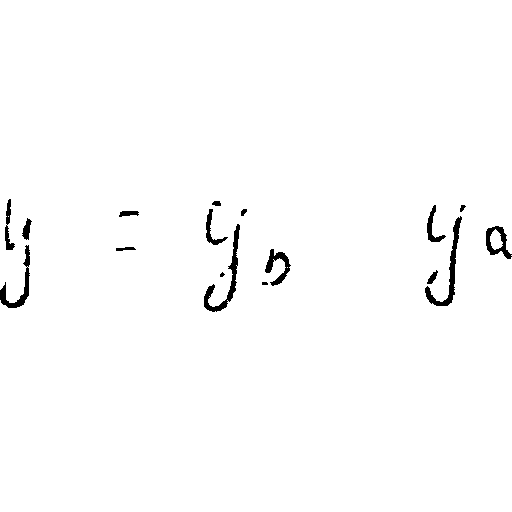 y = y_n y_a